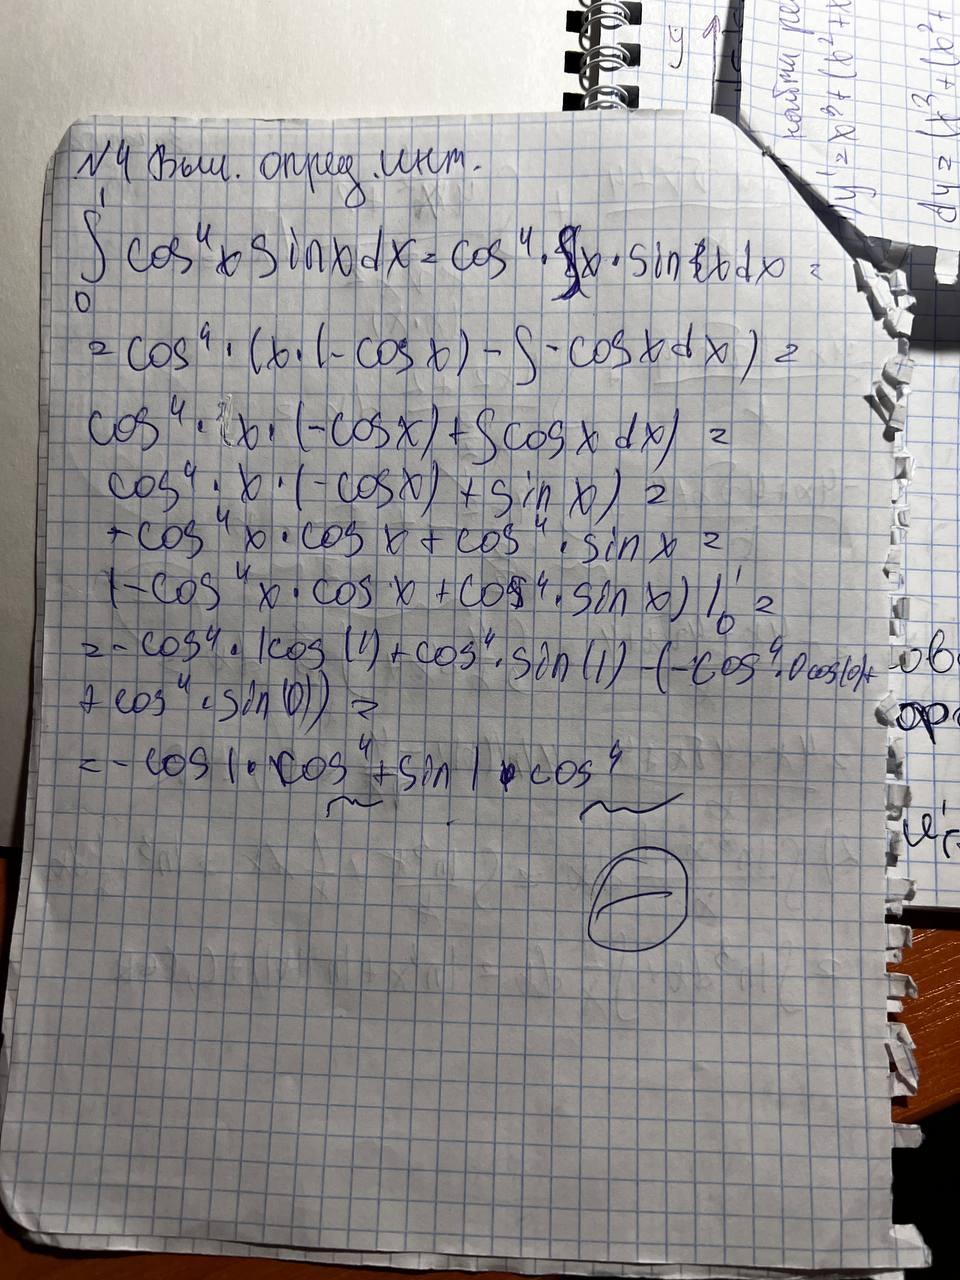 №4 Выч. опред. инт.
∫₀¹ cos⁴x sinx dx = cos⁴ · ∫x · sinx dx =
= cos⁴ · (x · (-cosx) - ∫ -cosx dx) =
cos⁴ · (x · (-cosx) + ∫cosx dx) =
cos⁴ · x · (-cosx) + sinx) =
+cos⁴x · cosx + cos⁴ · sinx =
(-cos⁴x · cosx + cos⁴ · sinx) |₀¹ =
= -cos⁴ · 1cos(1) + cos⁴ · sin(1) - (-cos⁴ · 0cos(0) +
+ cos⁴ · sin(0)) =
= -cos1 · cos⁴ + sin1 · cos⁴
найти
y' = x³ + (
dy = (x³ + (
y
ов
ор